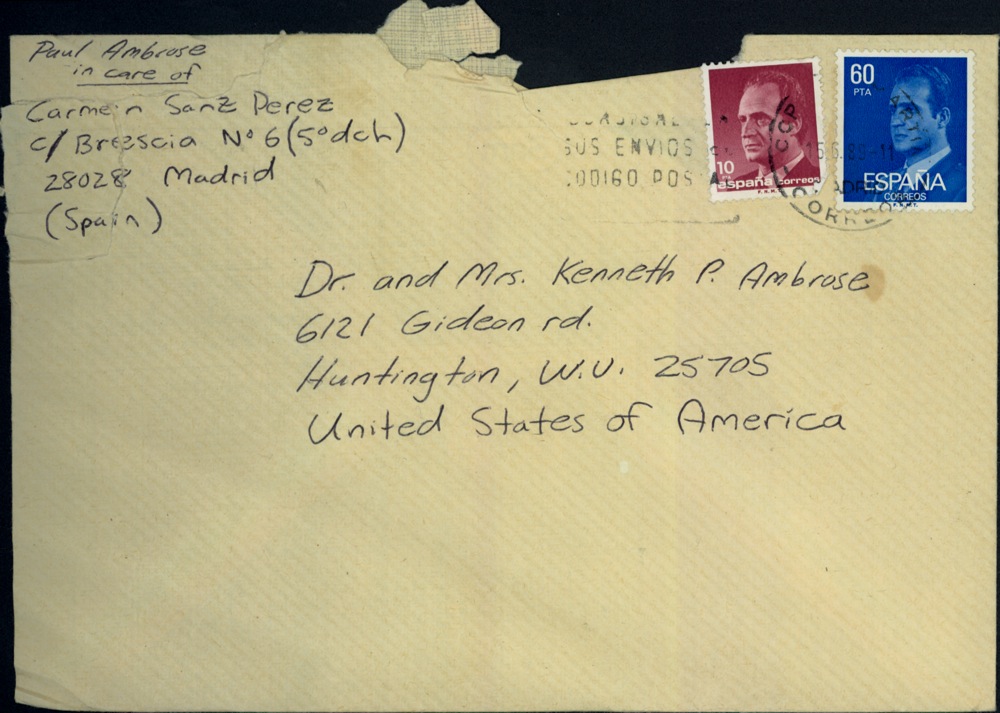 Paul Ambrose
in care of
Carmein Sanz Perez
c/ Brescia Nº 6 (5º dch)
28028 Madrid
(Spain)
SUS ENVIOS
CODIGO POSTAL
10
españa correos
60
PTA
ESPAÑA
CORREOS
15.6.89-11
MADRID
CORREOS
Dr. and Mrs. Kenneth P. Ambrose
6121 Gideon rd.
Huntington, W.V. 25705
United States of America